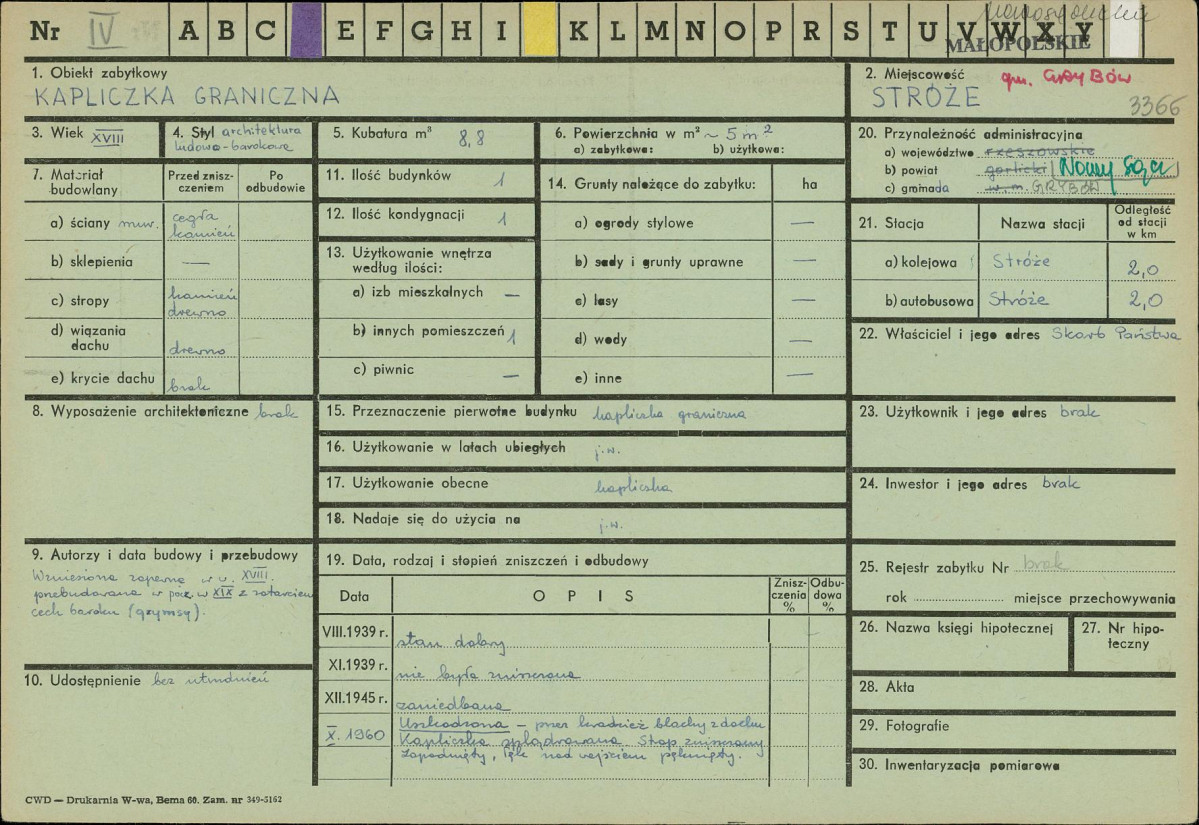 Nr IV A B C E F G H I K L M N O P R S T U V W X Y
MAŁOPOLSKIE
1. Obiekt zabytkowy
KAPLICZKA GRANICZNA
2. Miejscowość gm. GRYBÓW
STRÓŻE 3366
3. Wiek XVIII
4. Styl architektura
ludowo-barokowa
5. Kubatura m³ 8,8
6. Powierzchnia w m² ~ 5 m²
a) zabytkowa: b) użytkowa:
7. Materiał
budowlany
Przed znisz-
czeniem
Po
odbudowie
a) ściany mur. cegła
kamień
b) sklepienia —
c) stropy kamień
drewno
d) wiązania
dachu drewno
e) krycie dachu brak
11. Ilość budynków 1
12. Ilość kondygnacji 1
13. Użytkowanie wnętrza
według ilości:
a) izb mieszkalnych —
b) innych pomieszczeń 1
c) piwnic —
14. Grunty należące do zabytku: ha
a) ogrody stylowe —
b) sady i grunty uprawne —
c) lasy —
d) wody —
e) inne —
20. Przynależność administracyjna
a) województwo rzeszowskie
b) powiat gorlicki Nowy Sącz
c) gromada w. m. GRYBÓW
21. Stacja Nazwa stacji Odległość
od stacji
w km
a) kolejowa Stróże 2,0
b) autobusowa Stróże 2,0
22. Właściciel i jego adres Skarb Państwa
8. Wyposażenie architektoniczne brak
15. Przeznaczenie pierwotne budynku kapliczka graniczna
16. Użytkowanie w latach ubiegłych j.w.
17. Użytkowanie obecne kapliczka
18. Nadaje się do użycia na j.w.
23. Użytkownik i jego adres brak
24. Inwestor i jego adres brak
9. Autorzy i data budowy i przebudowy
Wzniesiona zapewne w w. XVIII.
przebudowana w pocz. w XIX z zatarciem
cech baroku (gzymsy).
10. Udostępnienie bez utrudnień
19. Data, rodzaj i stopień zniszczeń i odbudowy
Data OPIS Znisz-
czenia
% Odbu-
dowa
%
VIII.1939 r. stan dobry
XI.1939 r. nie była zniszczona
XII.1945 r. zaniedbana
X. 1960 Uszkodzona – przez kradzież blachy z dachu
Kapliczka splądrowana Strop zniszczony
zapadnięty, łęk nad wejściem pęknięty.
25. Rejestr zabytku Nr brak
rok miejsce przechowywania
26. Nazwa księgi hipotecznej
27. Nr hipo-
teczny
28. Akta
29. Fotografie
30. Inwentaryzacja pomiarowa
CWD — Drukarnia W-wa, Bema 60. Zam. nr 349-5162